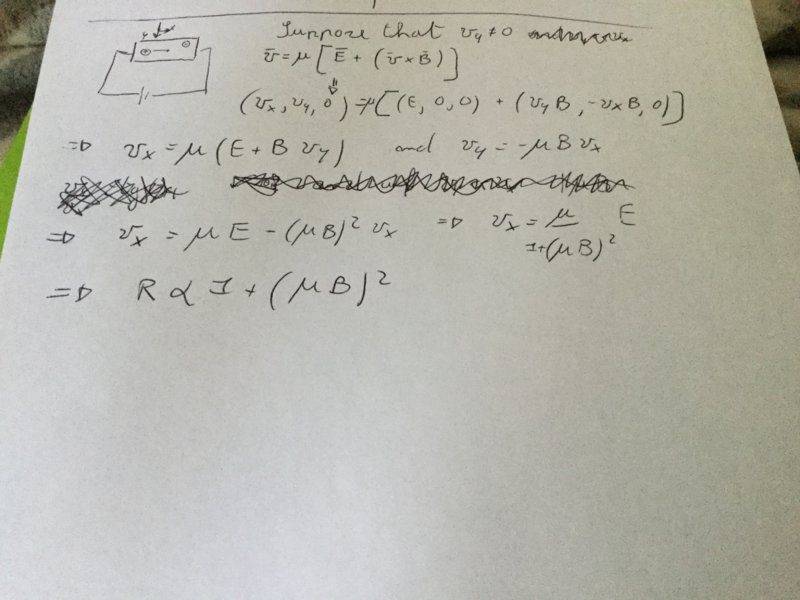 Suppose that v_y ≠ 0
v̄ = μ[Ē + (v̄ × B̄)]
⇓
(v_x, v_y, 0) = μ[(E, 0, 0) + (v_y B, -v_x B, 0)]
⇒ v_x = μ(E + B v_y) and v_y = -μ B v_x
⇒ v_x = μ E - (μB)² v_x ⇒ v_x = μ/(1+(μB)²) E
⇒ R ∝ 1 + (μB)²